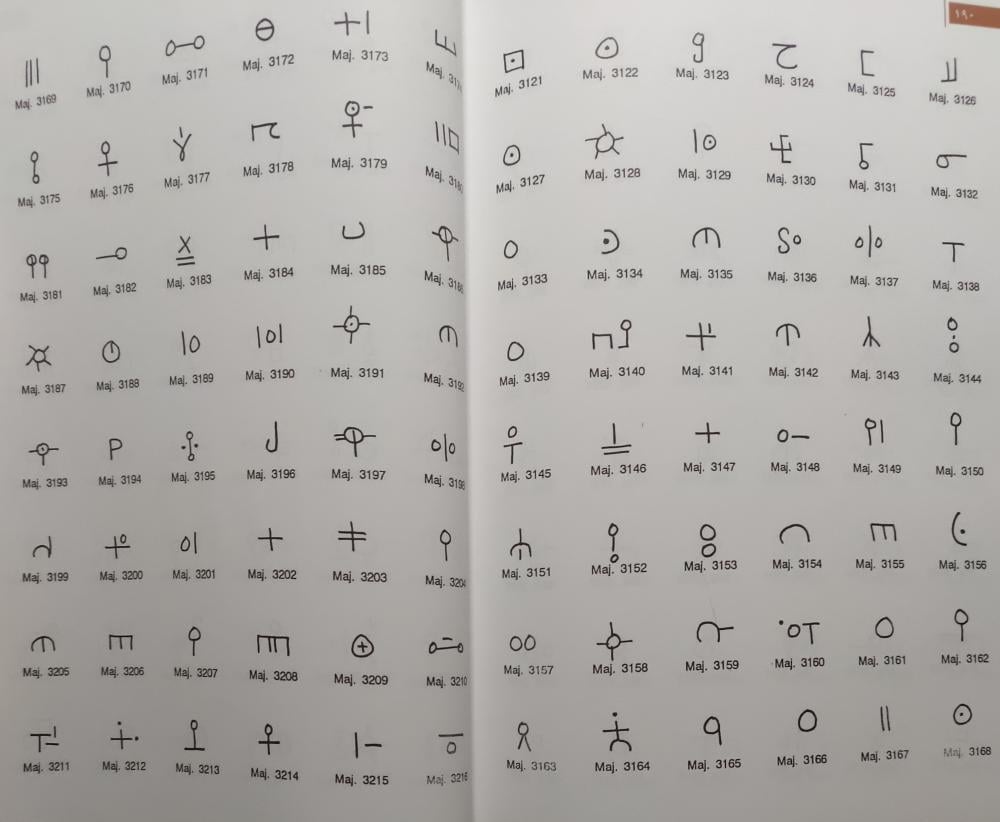 ١٩٠
Maj. 3121 Maj. 3122 Maj. 3123 Maj. 3124 Maj. 3125 Maj. 3126
Maj. 3127 Maj. 3128 Maj. 3129 Maj. 3130 Maj. 3131 Maj. 3132
Maj. 3133 Maj. 3134 Maj. 3135 Maj. 3136 Maj. 3137 Maj. 3138
Maj. 3139 Maj. 3140 Maj. 3141 Maj. 3142 Maj. 3143 Maj. 3144
Maj. 3145 Maj. 3146 Maj. 3147 Maj. 3148 Maj. 3149 Maj. 3150
Maj. 3151 Maj. 3152 Maj. 3153 Maj. 3154 Maj. 3155 Maj. 3156
Maj. 3157 Maj. 3158 Maj. 3159 Maj. 3160 Maj. 3161 Maj. 3162
Maj. 3163 Maj. 3164 Maj. 3165 Maj. 3166 Maj. 3167 Maj. 3168
Maj. 3169 Maj. 3170 Maj. 3171 Maj. 3172 Maj. 3173 Maj.
Maj. 3175 Maj. 3176 Maj. 3177 Maj. 3178 Maj. 3179 Maj. 3180
Maj. 3181 Maj. 3182 Maj. 3183 Maj. 3184 Maj. 3185 Maj. 3186
Maj. 3187 Maj. 3188 Maj. 3189 Maj. 3190 Maj. 3191 Maj. 3192
Maj. 3193 Maj. 3194 Maj. 3195 Maj. 3196 Maj. 3197 Maj. 3198
Maj. 3199 Maj. 3200 Maj. 3201 Maj. 3202 Maj. 3203 Maj. 3204
Maj. 3205 Maj. 3206 Maj. 3207 Maj. 3208 Maj. 3209 Maj. 3210
Maj. 3211 Maj. 3212 Maj. 3213 Maj. 3214 Maj. 3215 Maj. 3216